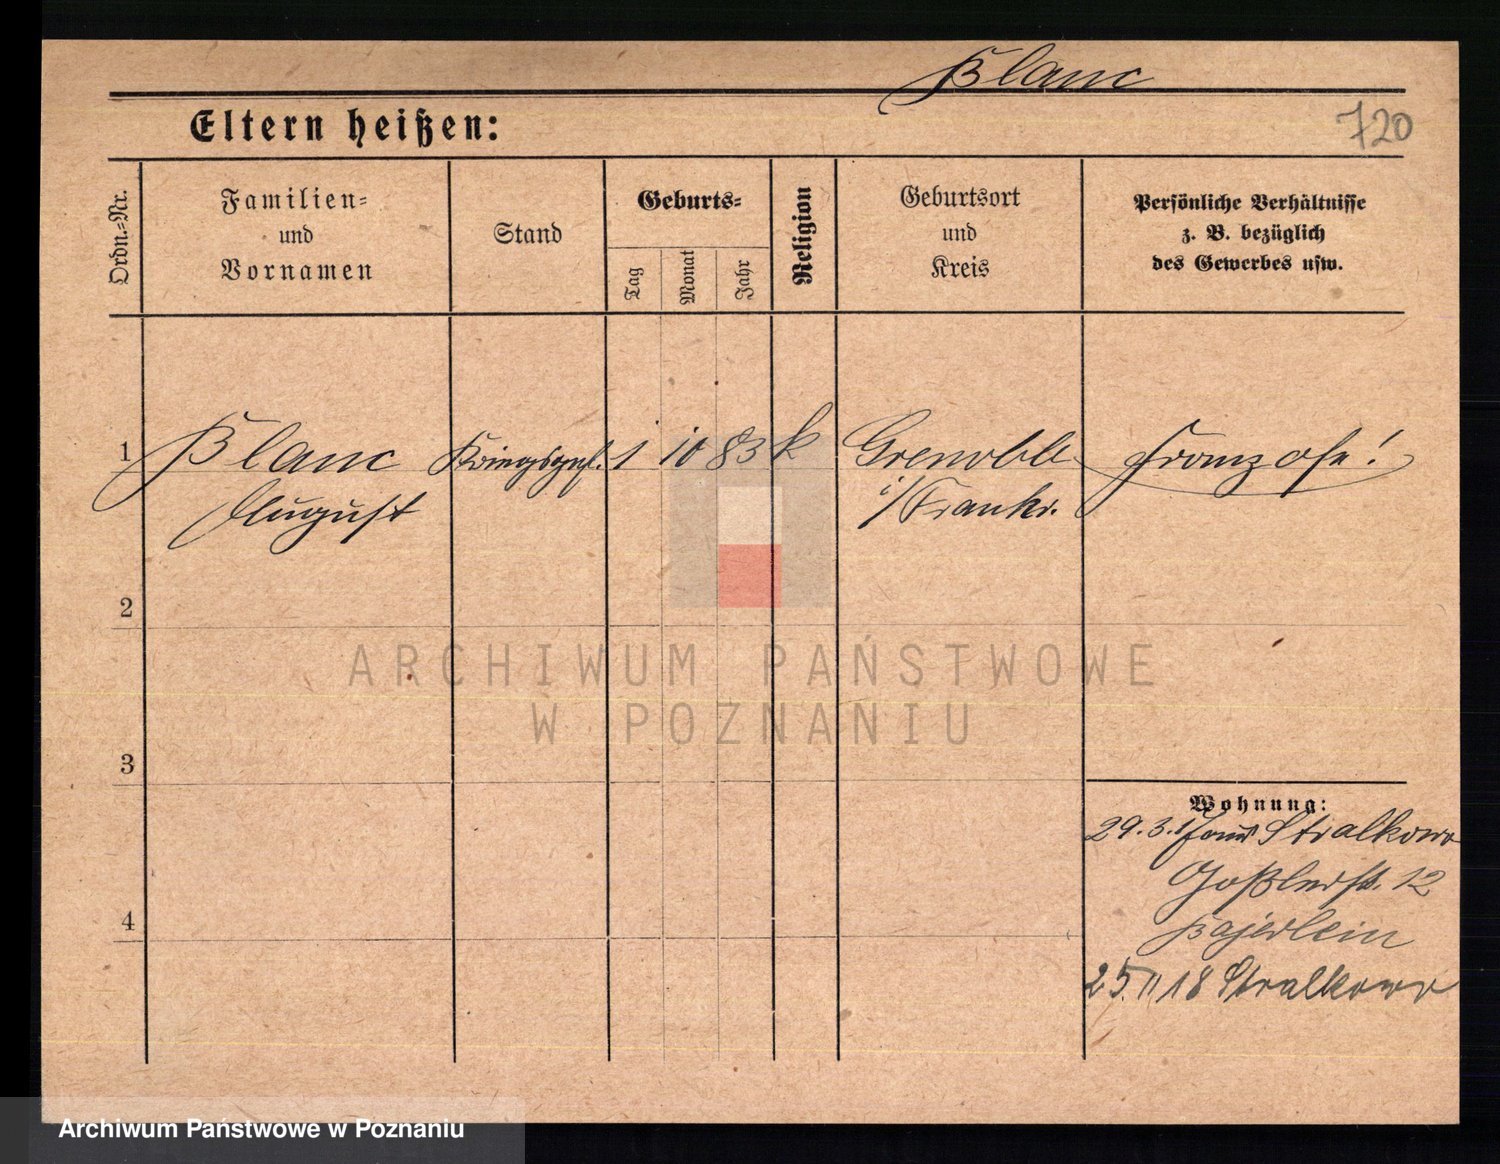 Blanc
Eltern heißen:
720
Ordn.=Nr.
Familien=
und
Vornamen
Stand
Geburts=
Tag
Monat
Jahr
Religion
Geburtsort
und
Kreis
Persönliche Verhältnisse
z. B. bezüglich
des Gewerbes usw.
1 Blanc Kriegsgef. 1 10 83 k Grenoble Franzose!
August i/Frankr.
2
ARCHIWUM PAŃSTWOWE
W POZNANIU
3
Wohnung:
29.3. Stralkowo
Goßlerstr. 12
Bajerlein
4
25. 11 18 Stralkowo
Archiwum Państwowe w Poznaniu